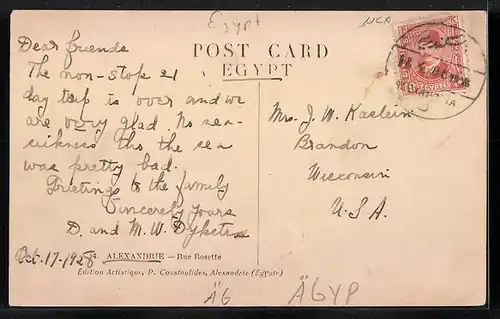 Egypt
NCA
Dear friends
The non-stop 21
day trip is over and we
are very glad. No sea-
sickness tho the sea
was pretty bad.
Greetings to the family
Sincerely yours
D. and M. W.
Oct. 17-1928
POST CARD
EGYPT
Mrs. J. W.
Brandon
Wisconsin
U.S.A.
ALEXANDRIE — Rue Rosette
Edition Artistique, P. Coustoulides, Alexandrie (Egypte)
ÄG
ÄGYP